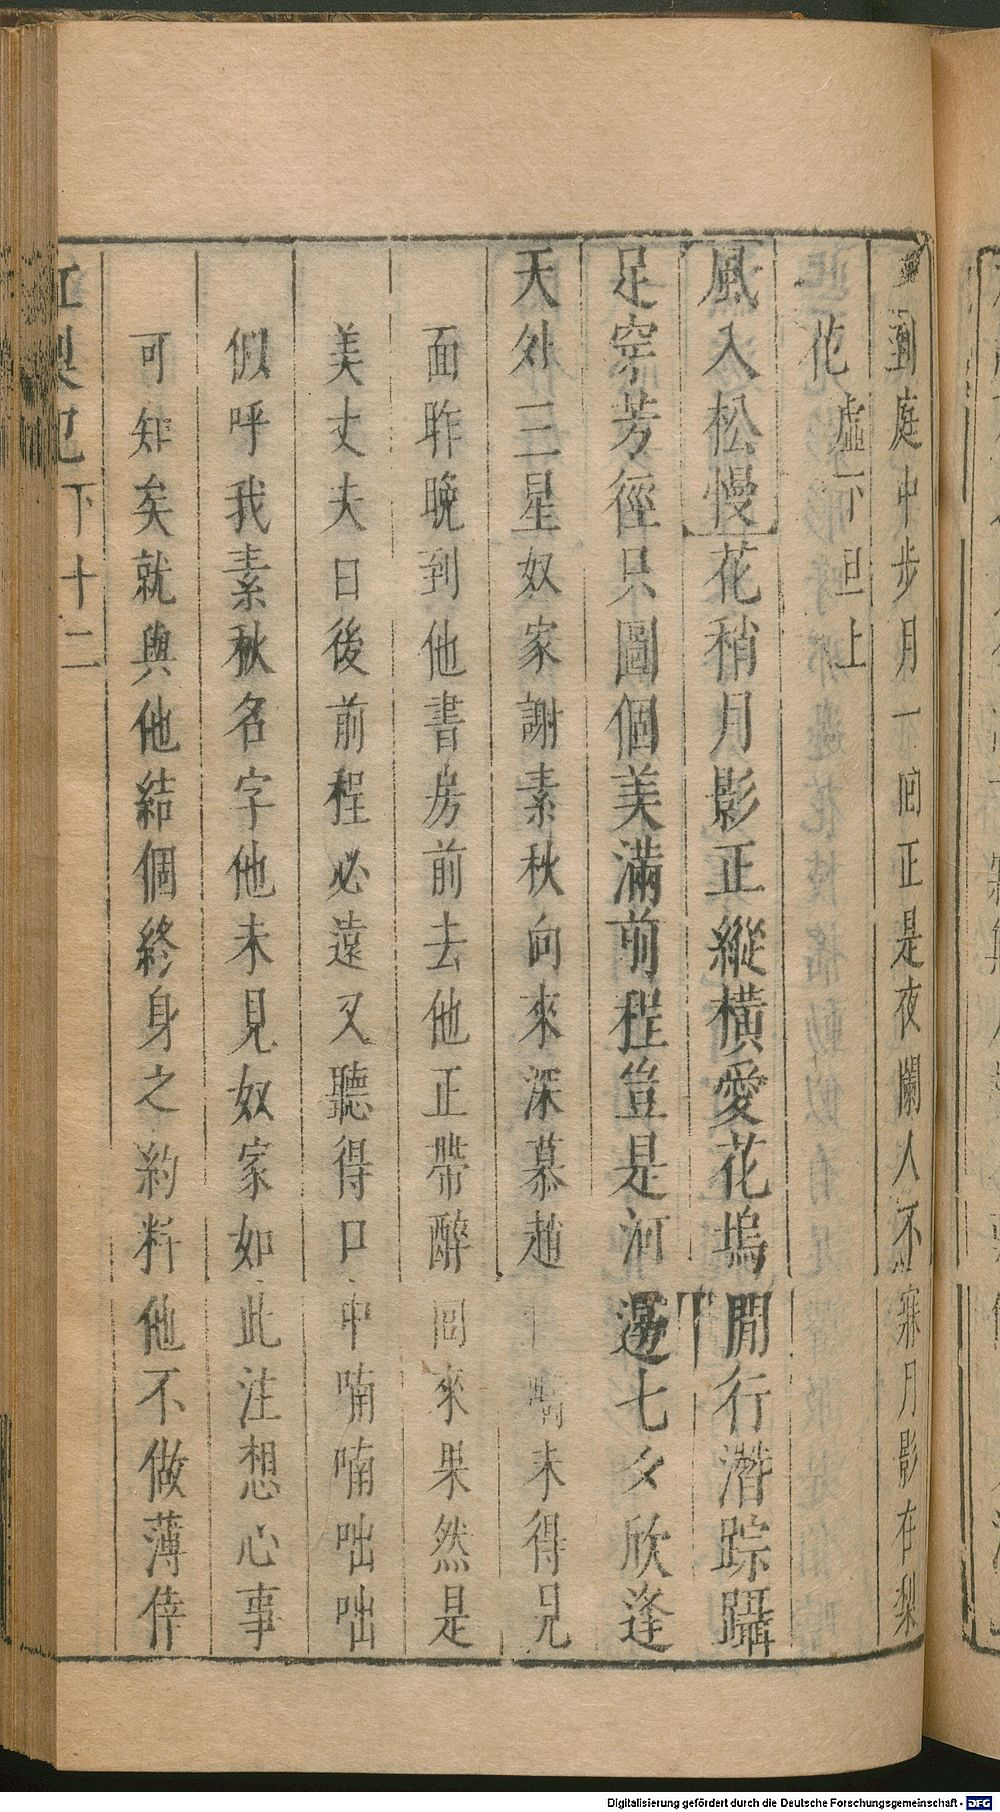 到庭中步月一回正是夜闌人不寐月影在梨
花
虛下
旦上
風入松慢花稍月影正縱橫愛花塢閒行潛踪躡
足穿芳徑只圖個美滿前程豈是河邊七夕欣逢
天外三星奴家謝素秋向來深慕趙未得見
面昨晚到他書房前去他正帶醉回來果然是
美丈夫日後前程必遠又聽得口中喃喃咄咄
似呼我素秋名字他未見奴家如此注想心事
可知矣就與他結個終身之約料他不做薄倖
紅梨記
下
十二
Digitalisierung gefördert durch die Deutsche Forschungsgemeinschaft - DFG